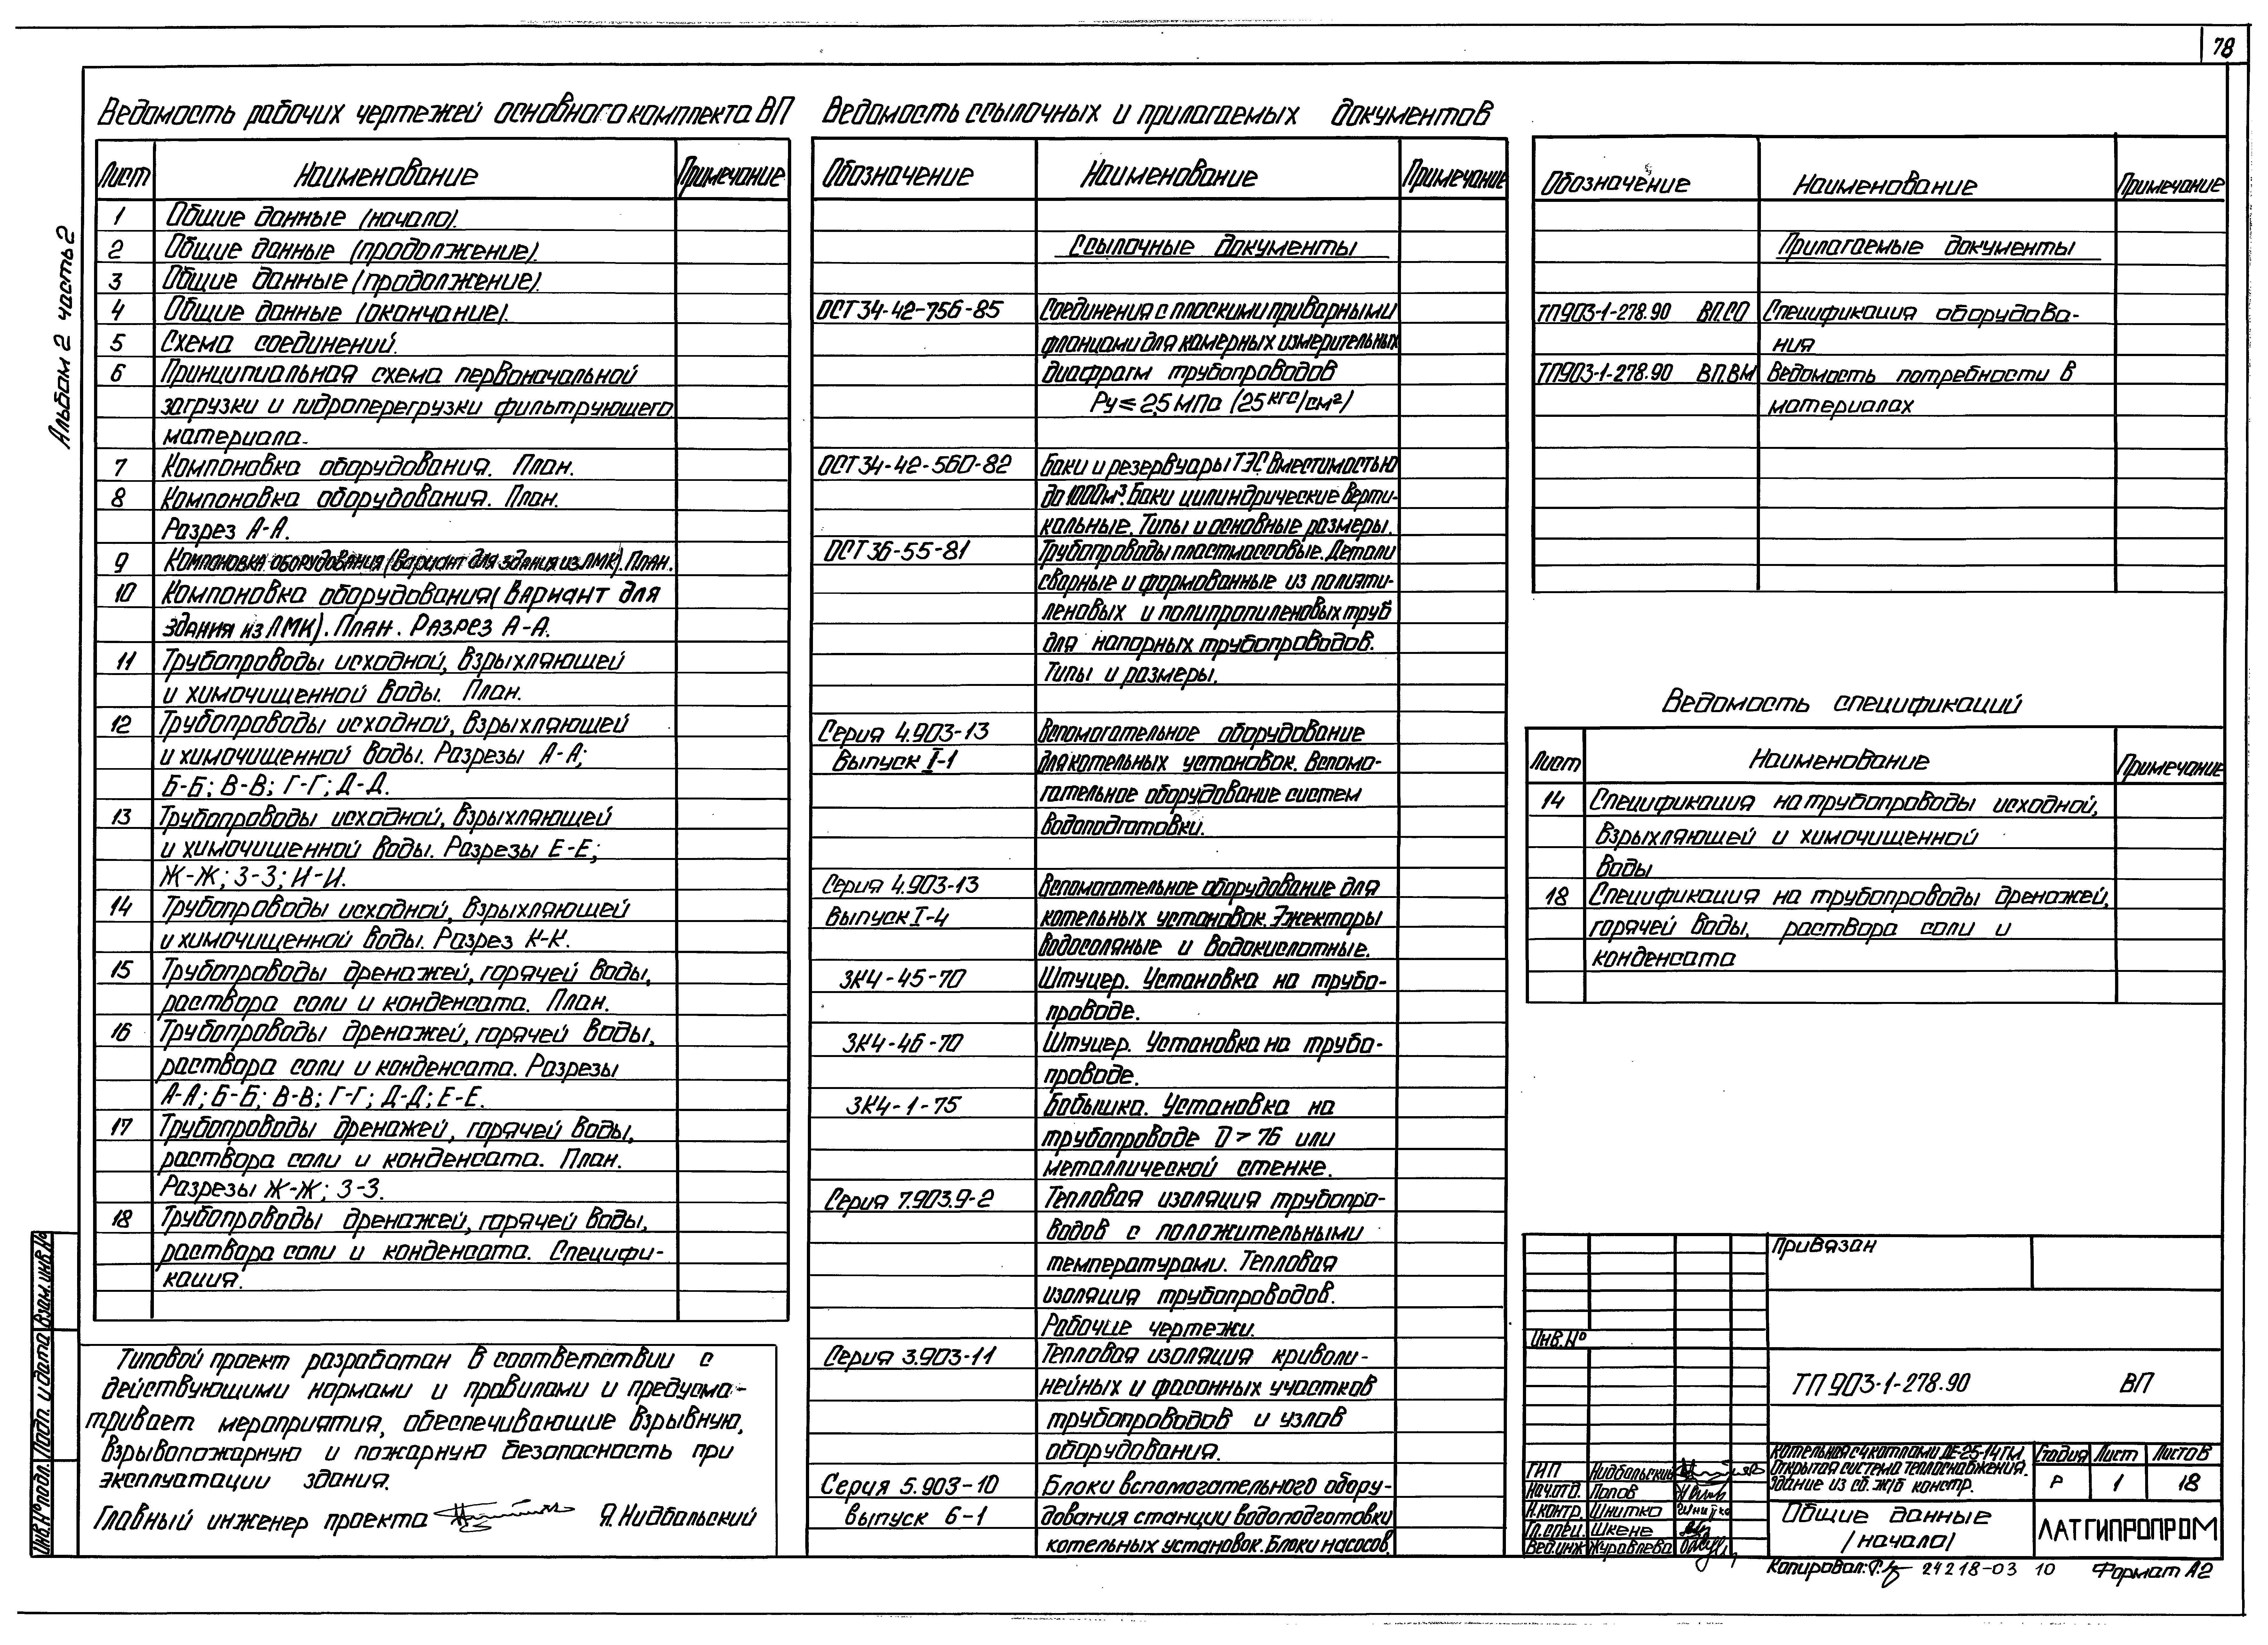 78
Альбом 2 часть 2
Ведомость рабочих чертежей основного комплекта ВП
Лист Наименование Примечание
1 Общие данные (начало).
2 Общие данные (продолжение).
3 Общие данные (продолжение).
4 Общие данные (окончание).
5 Схема соединений.
6 Принципиальная схема первоначальной
загрузки и гидроперегрузки фильтрующего
материала.
7 Компоновка оборудования. План.
8 Компоновка оборудования. План.
Разрез А-А.
9 Компоновка оборудования (вариант для здания из ЛМК). План.
10 Компоновка оборудования (вариант для
здания из ЛМК). План. Разрез А-А.
11 Трубопроводы исходной, взрыхляющей
и химочищенной воды. План.
12 Трубопроводы исходной, взрыхляющей
и химочищенной воды. Разрезы А-А;
Б-Б; В-В; Г-Г; Д-Д.
13 Трубопроводы исходной, взрыхляющей
и химочищенной воды. Разрезы Е-Е;
Ж-Ж; З-З; И-И.
14 Трубопроводы исходной, взрыхляющей
и химочищенной воды. Разрез К-К.
15 Трубопроводы дренажей, горячей воды,
раствора соли и конденсата. План.
16 Трубопроводы дренажей, горячей воды,
раствора соли и конденсата. Разрезы
А-А; Б-Б; В-В; Г-Г; Д-Д; Е-Е.
17 Трубопроводы дренажей, горячей воды,
раствора соли и конденсата. План.
Разрезы Ж-Ж; З-З.
18 Трубопроводы дренажей, горячей воды,
раствора соли и конденсата. Специфи-
кация.
Типовой проект разработан в соответствии с
действующими нормами и правилами и предусма-
тривает мероприятия, обеспечивающие взрывную,
взрывопожарную и пожарную безопасность при
эксплуатации здания.
Главный инженер проекта Я. Нидбальский
Инв.№ подл. Подп. и дата Взам. инв.№
Ведомость ссылочных и прилагаемых документов
Обозначение Наименование Примечание
Ссылочные документы
ОСТ 34-42-756-85 Соединения с плоскими приварными
фланцами для камерных измерительных
диафрагм трубопроводов
Ру ≤ 2,5 МПа (25 кгс/см²)
ОСТ 34-42-560-82 Баки и резервуары ТЭС вместимостью
до 1000м³. Баки цилиндрические верти-
кальные. Типы и основные размеры.
ОСТ 36-55-81 Трубопроводы пластмассовые. Детали
сварные и формованные из полиэти-
леновых и полипропиленовых труб
для напорных трубопроводов.
Типы и размеры.
Серия 4.903-13 Вспомогательное оборудование
Выпуск I-1 для котельных установок. Вспомо-
гательное оборудование систем
водоподготовки.
Серия 4.903-13 Вспомогательное оборудование для
Выпуск I-4 котельных установок. Эжекторы
водосоляные и водокислотные.
ЗК4-45-70 Штуцер. Установка на трубо-
проводе.
ЗК4-46-70 Штуцер. Установка на трубо-
проводе.
ЗК4-1-75 Бобышка. Установка на
трубопроводе D > 76 или
металлической стенке.
Серия 7.903.9-2 Тепловая изоляция трубопро-
водов с положительными
температурами. Тепловая
изоляция трубопроводов.
Рабочие чертежи.
Серия 3.903-11 Тепловая изоляция криволи-
нейных и фасонных участков
трубопроводов и узлов
оборудования.
Серия 5.903-10 Блоки вспомогательного обору-
выпуск 6-1 дования станции водоподготовки
котельных установок. Блоки насосов.
Обозначение Наименование Примечание
Прилагаемые документы
ТП903-1-278.90 ВП.СО Спецификация оборудова-
ния
ТП903-1-278.90 ВП.ВМ Ведомость потребности в
материалах
Ведомость спецификаций
Лист Наименование Примечание
14 Спецификация на трубопроводы исходной,
взрыхляющей и химочищенной
воды
18 Спецификация на трубопроводы дренажей,
горячей воды, раствора соли и
конденсата
Привязан
Инв.№
ТП 903-1-278.90 ВП
Котельная с 4 котлами ДЕ-25-14ГМ.
Открытая система теплоснабжения.
Здание из сб. ж/б констр.
Стадия Лист Листов
Р 1 18
ГИП Нидбальский
Нач.отд. Попов
Н.контр. Шнитко
Гл.спец. Шкене
Вед.инж Журавлева
Общие данные
(начало)
ЛАТГИПРОПРОМ
Копировал: 24218-03 10 Формат А2